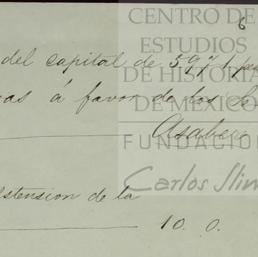 6
CENTRO DE
ESTUDIOS
DE HISTORIA
DE MÉXICO
FUNDACIÓN
Carlos Slim
del capital de 5971 pes
as á favor de los
estension de la
10. 0.